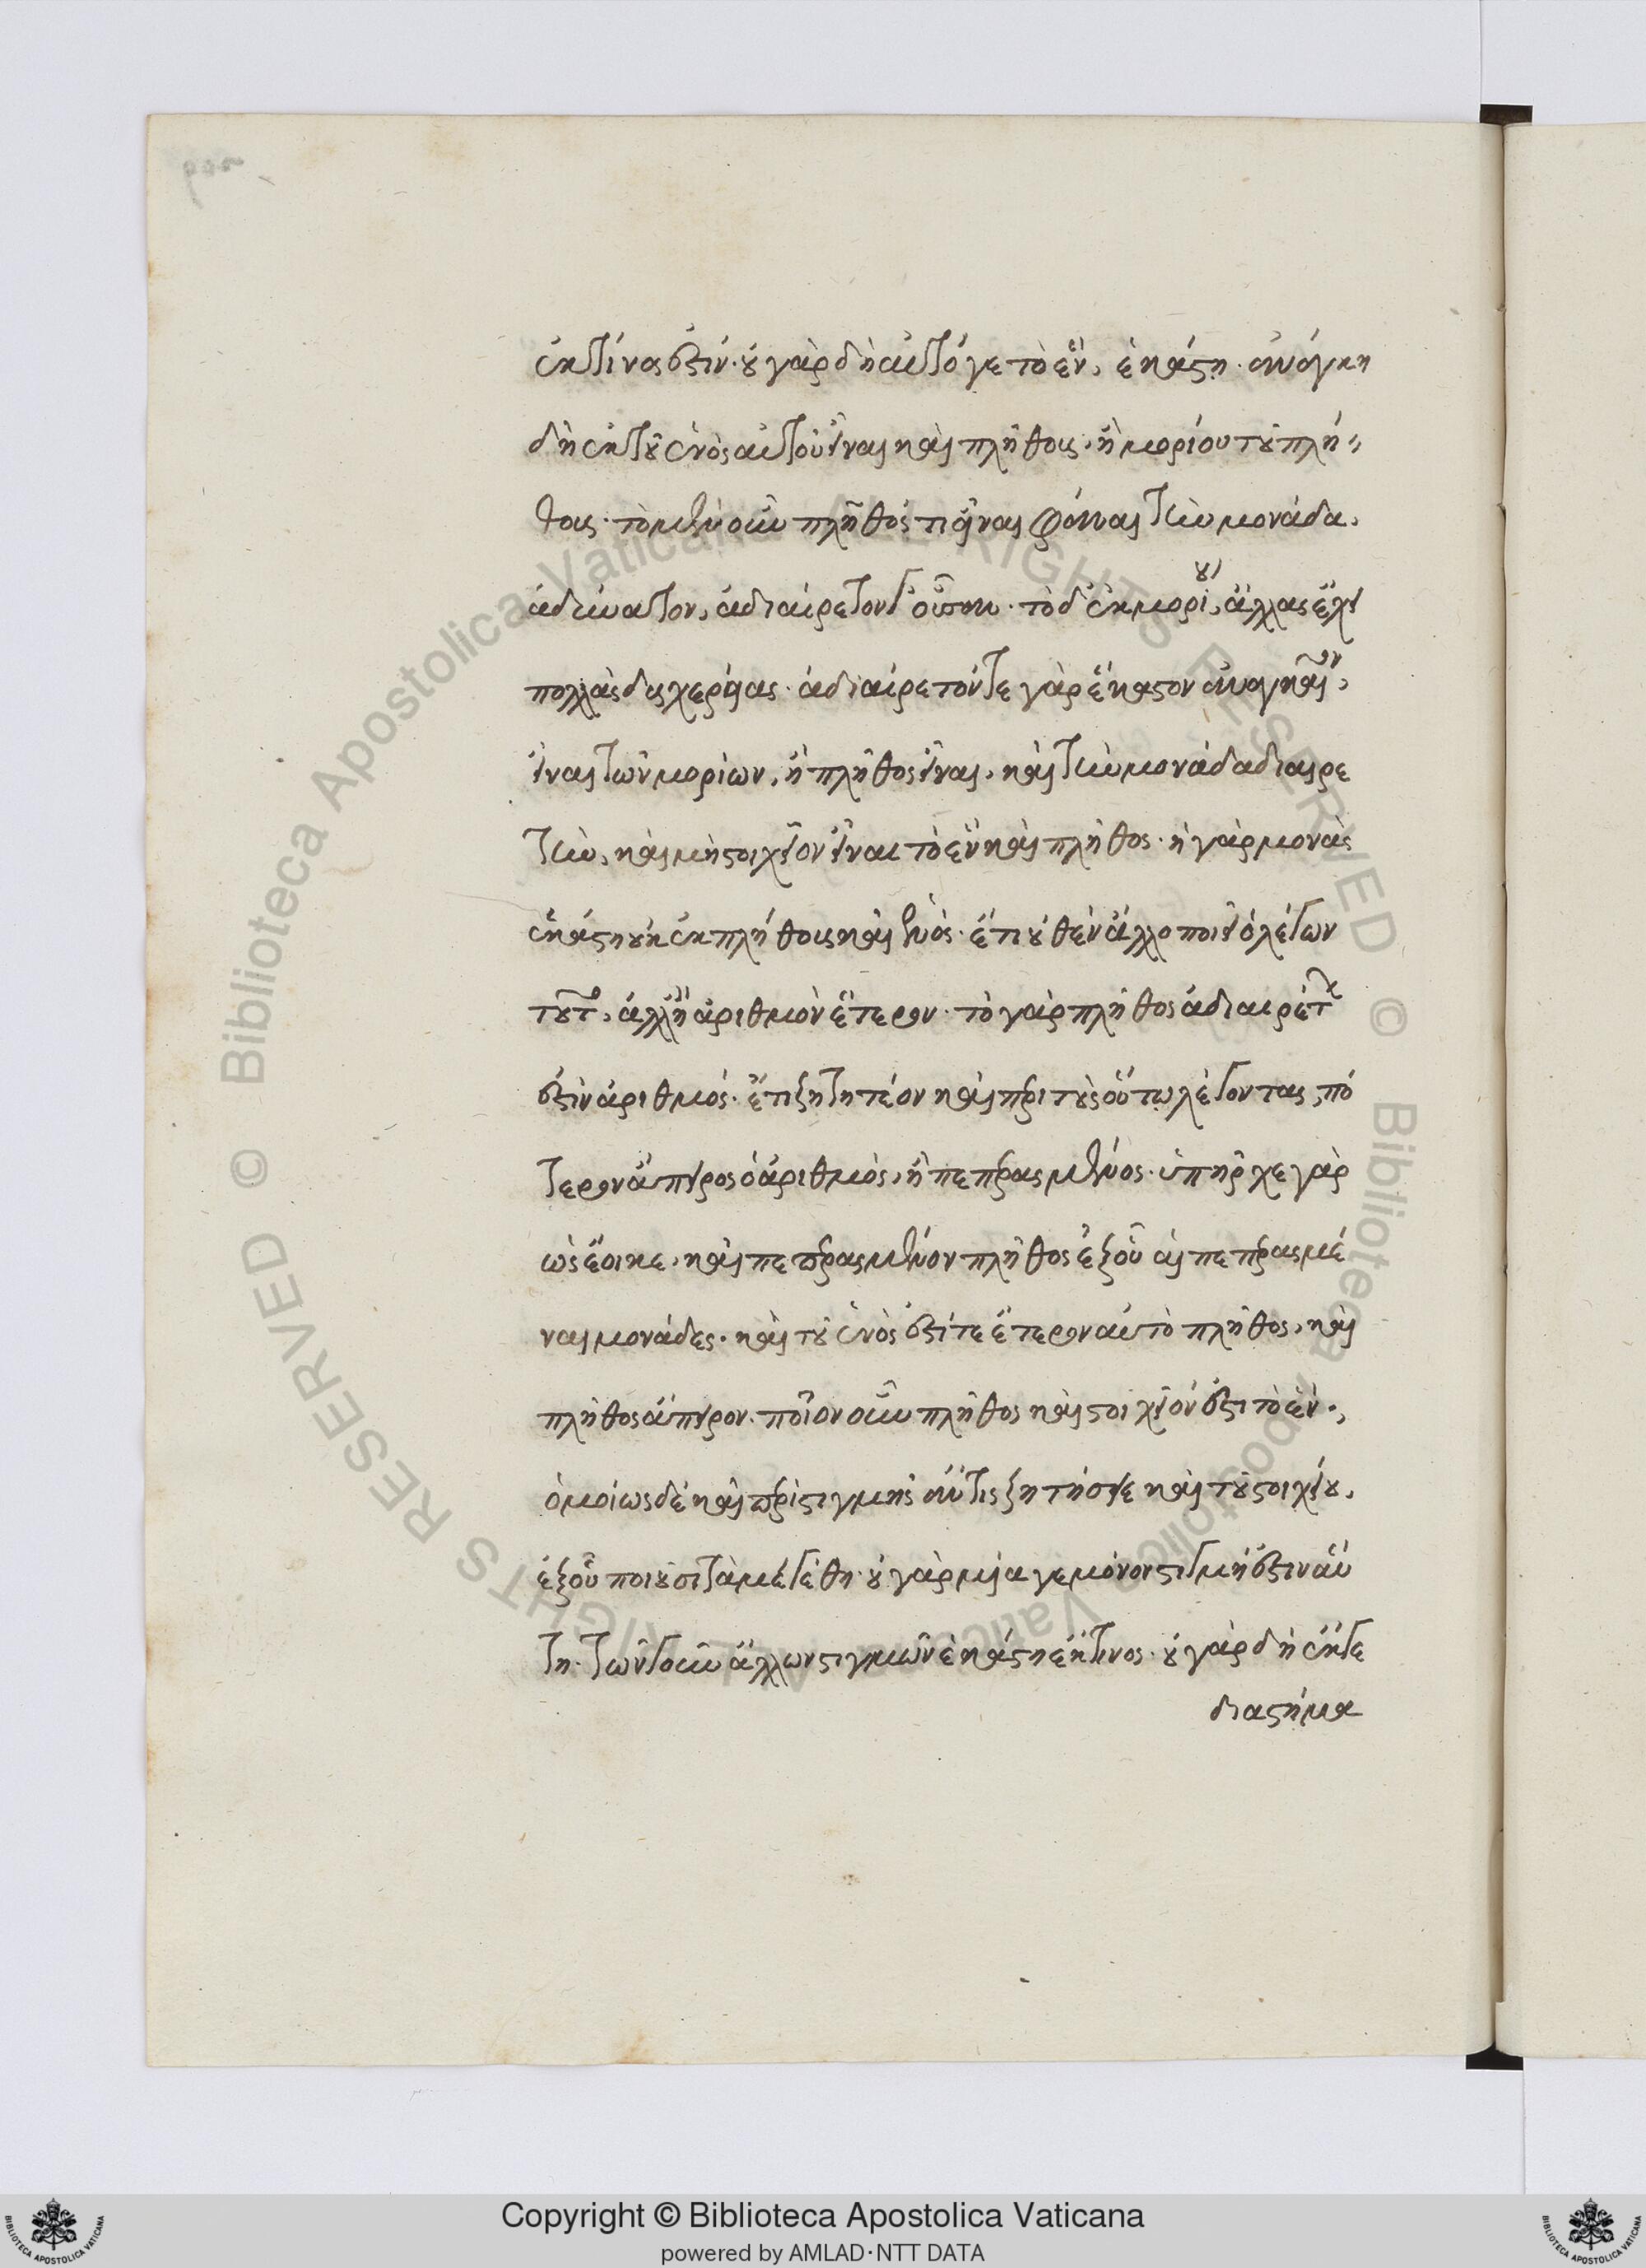 ἐκ τίνος ἐστίν· οὐ γὰρ δὴ αὐτό γε τὸ ἓν, ἑκάστη· ἀνάγκη
δὴ ἐκ τοῦ ἑνὸς αὐτοῦ εἶναι καὶ πλήθους, ἢ μορίου τοῦ πλή-
θους· τὸ μὲν οὖν πλῆθός τι εἶναι φάναι τὴν μονάδα,
ἀδύνατον, ἀδιαίρετόν γ' οὖσαν· τὸ δ' ἐκ μορίου, ἄλλας ἔχει
πολλὰς δυσχερείας· ἀδιαίρετόν τε γὰρ ἕκαστον ἀναγκαῖον,
εἶναι τῶν μορίων, ἢ πλῆθος εἶναι, καὶ τὴν μονάδα διαιρε
τὴν, καὶ μὴ στοιχεῖον εἶναι τὸ ἓν καὶ πλῆθος· ἡ γὰρ μονὰς
ἑκάστη οὐκ ἐκ πλήθους καὶ ἑνός· ἔτι οὐθὲν ἄλλο ποιεῖ ὁ λέγων
τοῦτο, ἀλλ' ἢ ἀριθμὸν ἕτερον· τὸ γὰρ πλῆθος ἀδιαιρέτων
ἐστὶν ἀριθμός· ἔτι ζητητέον καὶ περὶ τοὺς οὕτω λέγοντας, πό
τερον ἄπειρος ὁ ἀριθμὸς, ἢ πεπερασμένος· ὑπῆρχε γὰρ
ὡς ἔοικε, καὶ πεπερασμένον πλῆθος ἐξ οὗ αἱ πεπερασμέ
ναι μονάδες· καὶ τοῦ ἑνὸς ἐστί τε ἕτερον αὐτὸ πλῆθος, καὶ
πλῆθος ἄπειρον· ποῖον οὖν πλῆθος καὶ στοιχεῖόν ἐστι τὸ ἕν·,
ὁμοίως δὲ καὶ περὶ στιγμῆς ἄν τις ζητήσειε καὶ τοῦ στοιχείου,
ἐξ οὗ ποιοῦσι τὰ μεγέθη· οὐ γὰρ μία γε μόνον στιγμή ἐστιν αὕ
τη· τῶν γοῦν ἄλλων στιγμῶν ἑκάστη ἔκ τινος· οὐ γὰρ δὴ ἔκ γε
διαστήμα